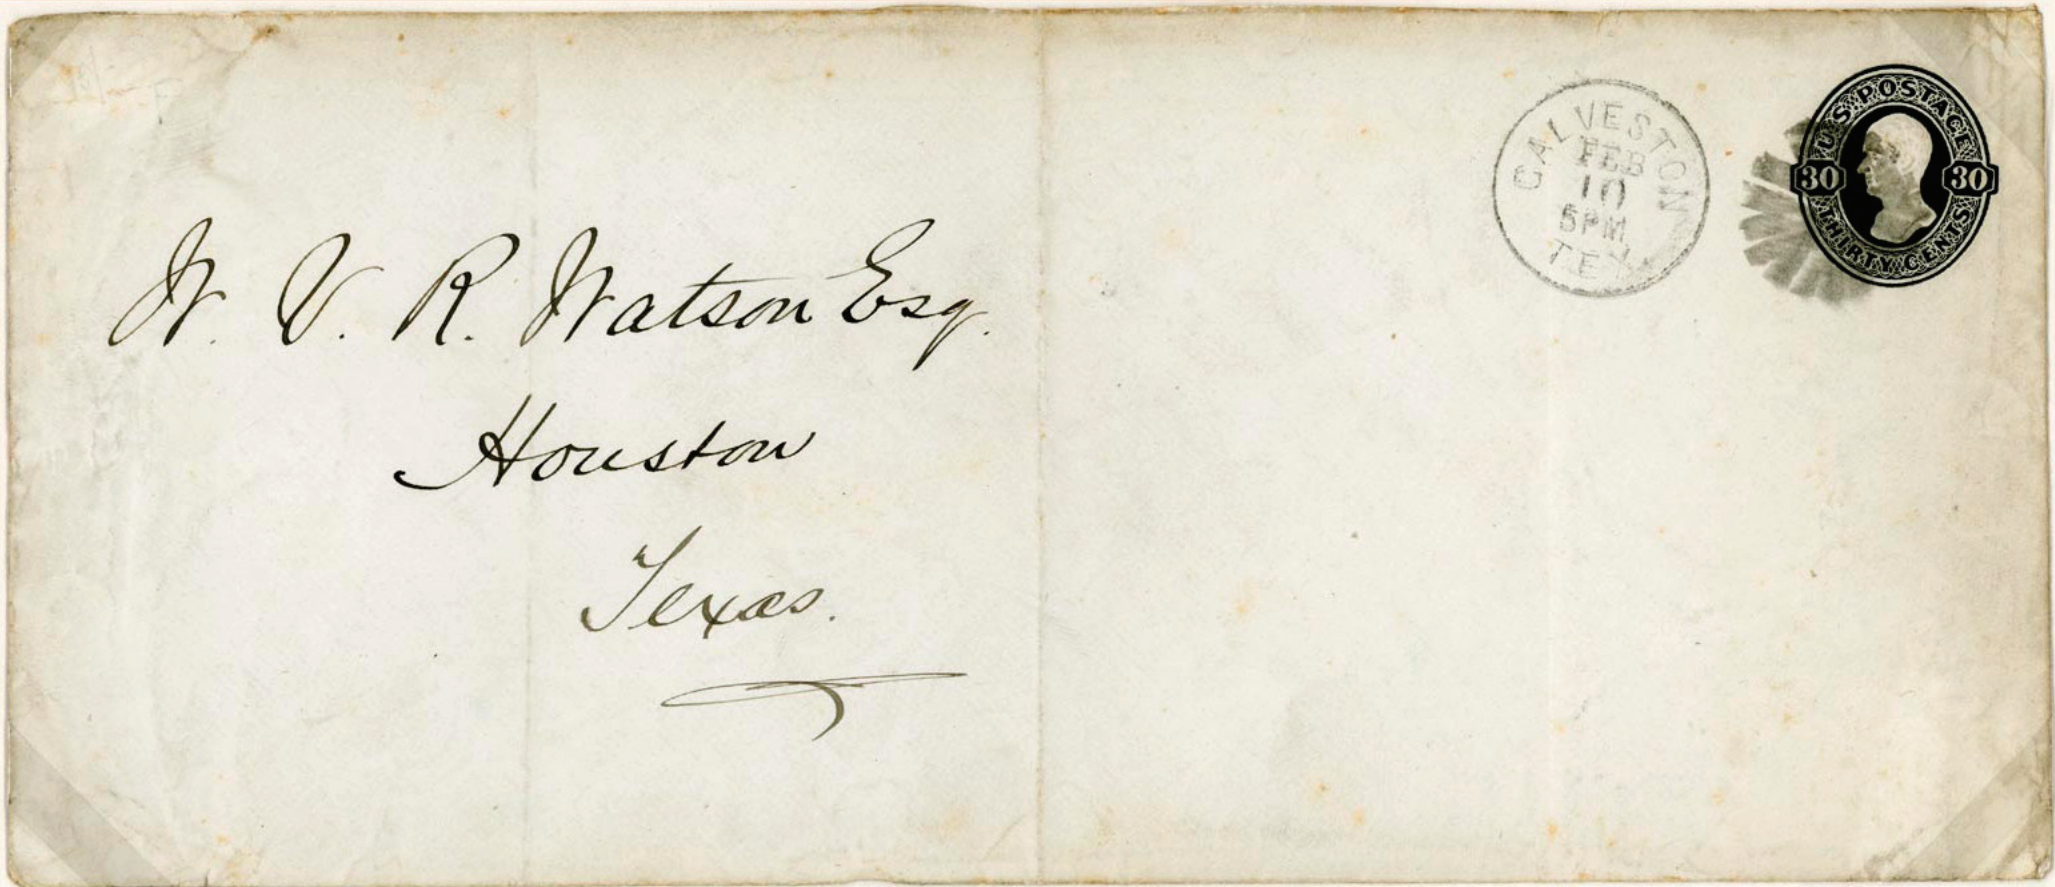 W. V. R. Watson Esq.
Houston
Texas.
GALVESTON
FEB
10
5PM
TEX
U.S. POSTAGE
30 30
THIRTY CENTS